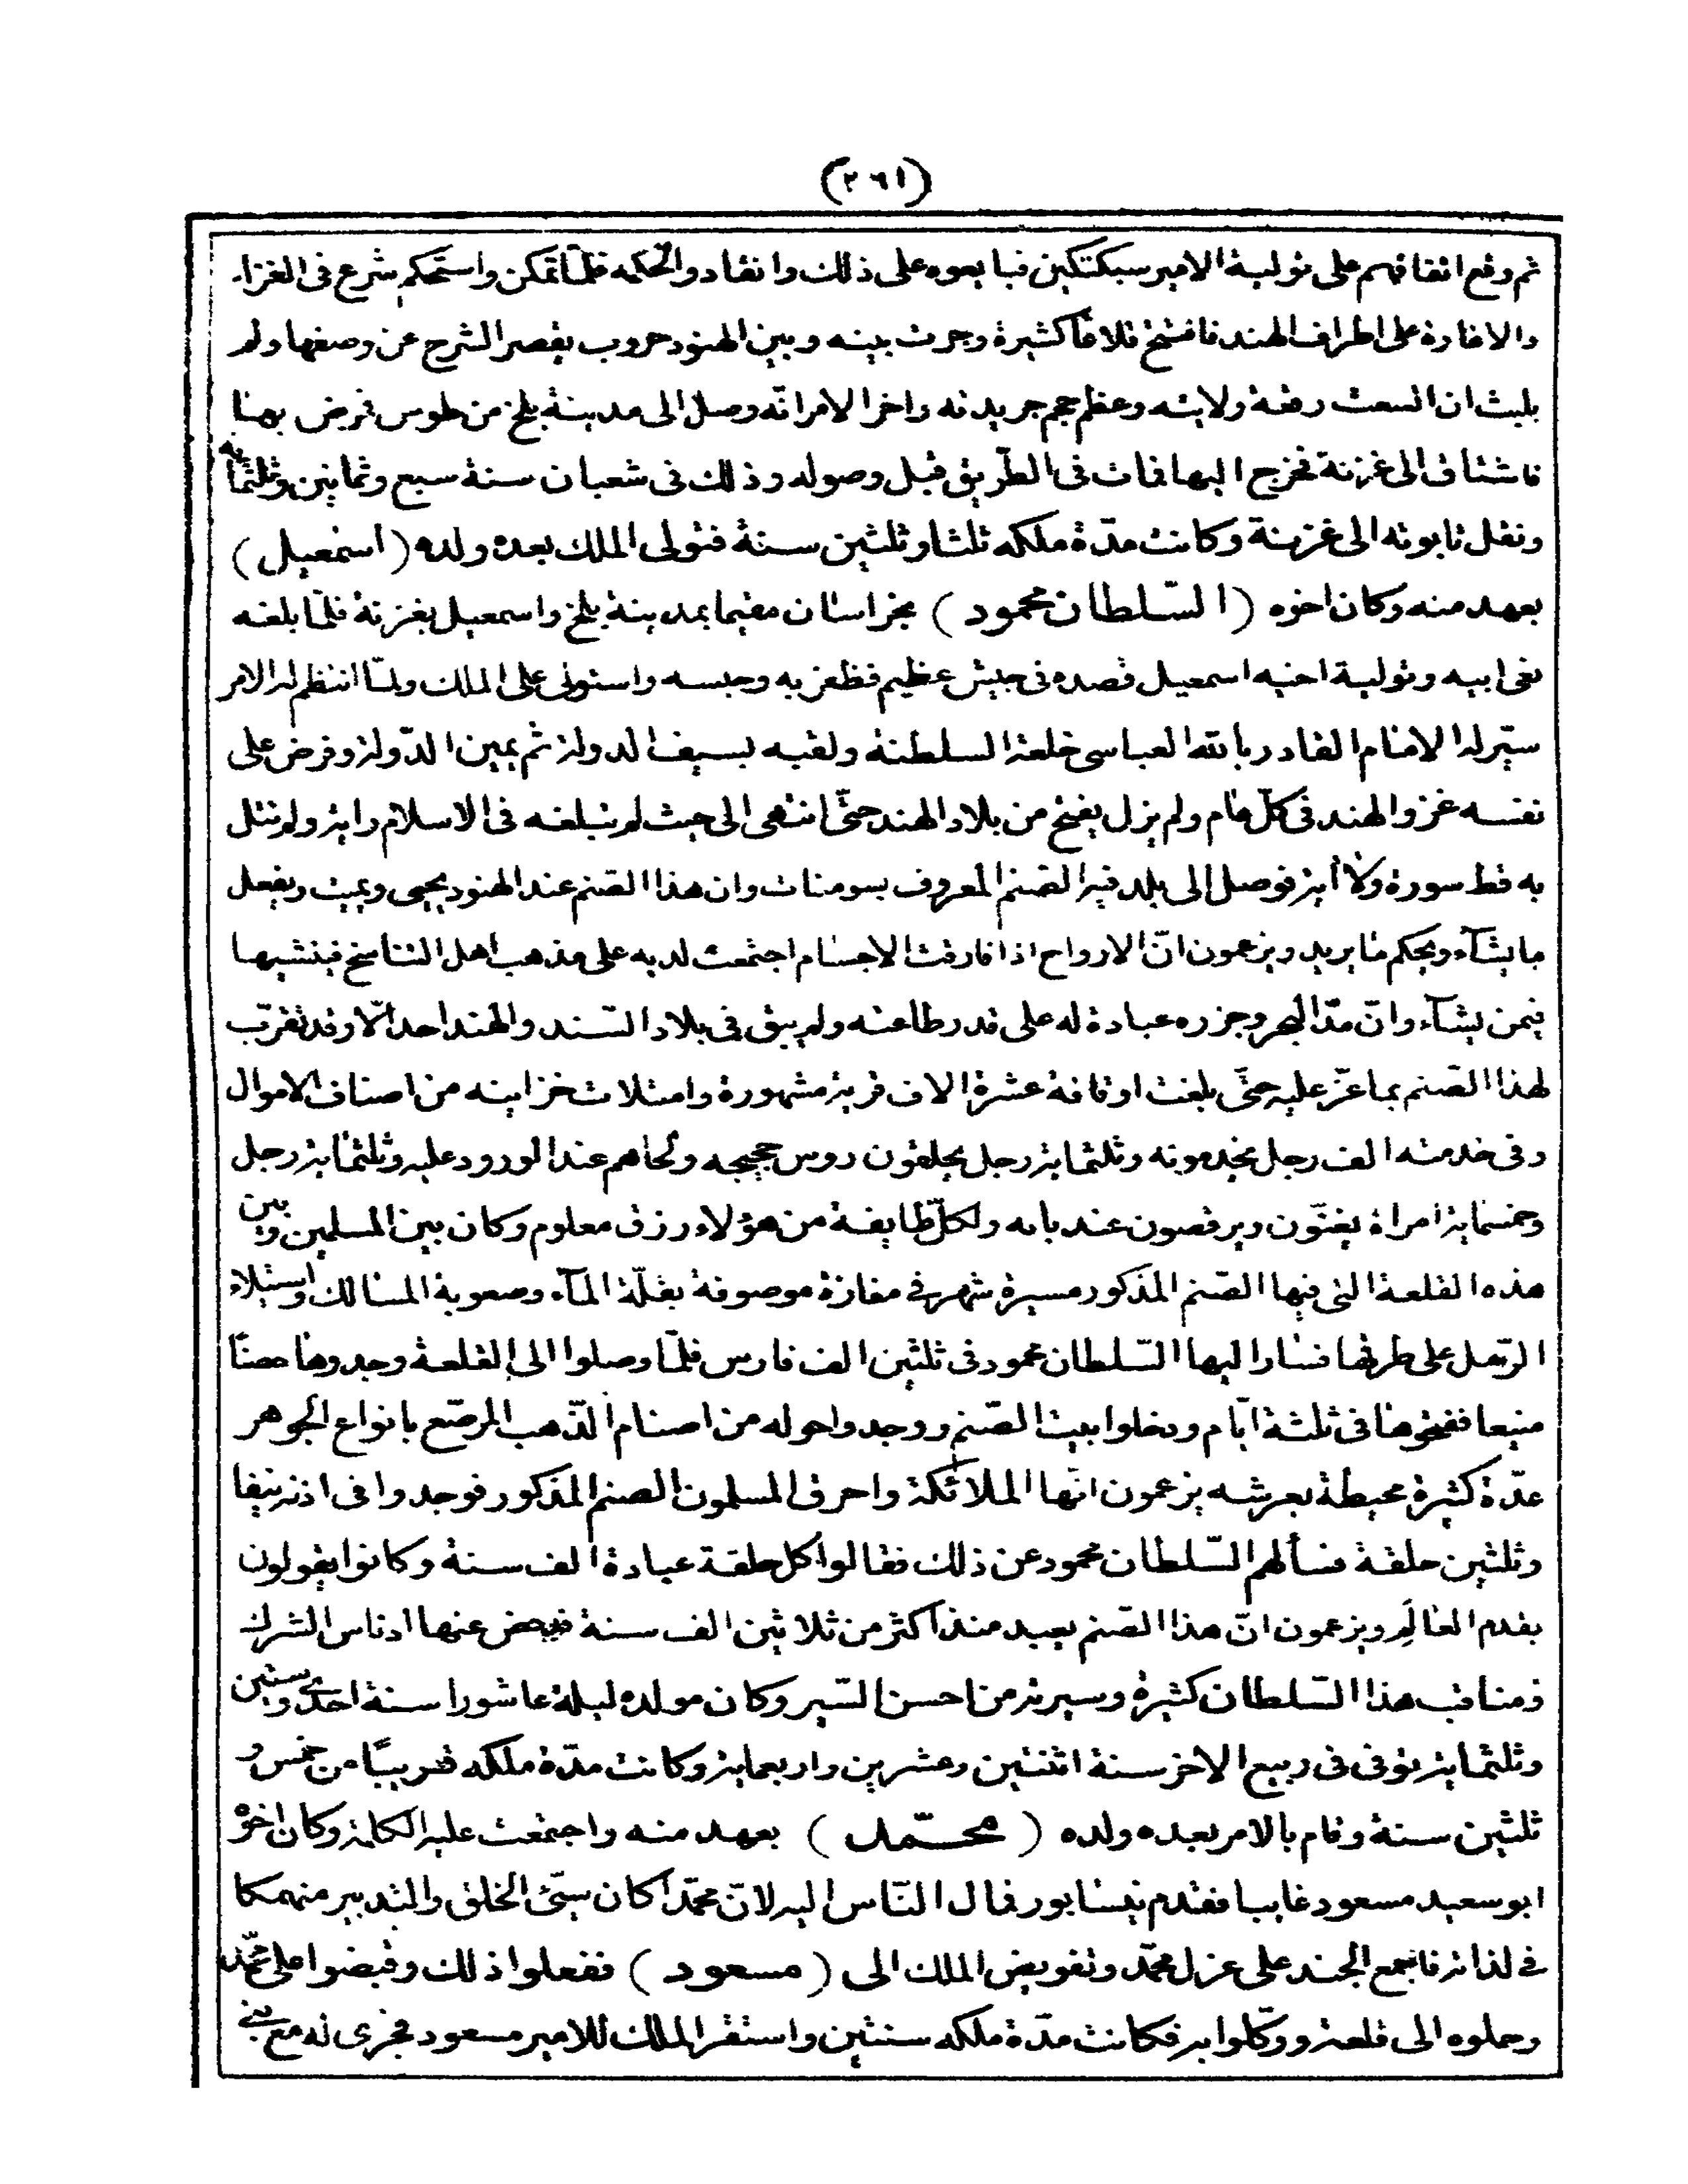 (٢٦١)
ثم وقع اتفاقهم على تولية الامير سبكتكين فبايعوه على ذلك وانقادوا لحكمه فلمّا تمكن واستحكم شرع فى الغزاء
والاغارة على اطراف الهند فافتتح قلاعًا كثيرة وجرت بينه وبين الهنود حروب يقصر الشرح عن وصفها ولم
يلبث ان اتسعت رقعة ولايته وعظم حجم جريدته واخر الامر انّه وصل الى مدينة بلخ من طوس فمرض بها
فاشتاق الى غزنة فخرج اليها فمات فى الطّريق قبل وصوله وذلك فى شعبان سنة سبع وثمانين وثلثمائه
ونقل تابوته الى غزنة وكانت مدّة ملكه ثلثا وثلثين سنة فتولى الملك بعده ولده (اسمعيل)
بعهد منه وكان اخوه (السّلطان محمود) بخراسان مقيما بمدينة بلخ واسمعيل بغزنة فلمّا بلغه
نعى ابيه وتولية اخيه اسمعيل قصده فى جيش عظيم فظفر به وحبسه واستولى على الملك ولمّا انتظم له الامر
سيّر له الامام القادر بالله العباسى خلعة السلطنة ولقبه بسيف الدولة ثم بيمين الدّولة وفرض على
نفسه غزو الهند فى كلّ عام ولم يزل يفتح من بلاد الهند حتّى انتهى الى حيث لم تبلغه فى الاسلام راية ولم تتل
به قط سورة ولا أية فوصل الى بلد فيه الصّنم المعروف بسومنات وان هذا الصّنم عند الهنود يحيى ويميت ويفعل
ما يشآء ويحكم ما يريد ويزعمون انّ الارواح اذا فارقت الاجسام اجتمعت لديه على مذهب اهل التناسخ فينشيها
فيمن يشآء وانّ مدّ البحر وجزره عبادة له على قدر طاعته ولم يبق فى بلاد السّند والهند احد الّا وقد تقرّب
لهذا الصّنم بما عزّ عليه حتّى بلغت اوقافه عشرة الاف قرية مشهورة وامتلات خزاينه من اصناف الاموال
وفى خدمته الف رجل يخدمونه وثلثماية رجل يحلقون روس حجيجه ولحاهم عند الورود عليه وثلثماية رجل
وخمسماية امراة يغنّون ويرقصون عند بابه ولكلّ طايفة من هؤلاء رزق معلوم وكان بين المسلمين وبين
هذه القلعة التى فيها الصّنم المذكور مسيرة شهر فى مفازة موصوفة بقلّة المآء وصعوبة المسالك واستيلاء
الرّمل على طرقها فسار اليها السّلطان محمود فى ثلثين الف فارس فلمّا وصلوا الى القلعة وجدوها حصنًا
منيعا ففتحوها فى ثلثة ايّام ودخلوا بيت الصّنم ووجدوا حوله من اصنام الذّهب المرصّع بانواع الجوهر
عدّة كثيرة محيطة بعرشه يزعمون انّها الملائكة واحرق المسلمون الصنم المذكور فوجدوا فى اذنه نيفا
وثلثين حلقة فسألهم السّلطان محمود عن ذلك فقالوا كل حلقة عبادة الف سنة وكانوا يقولون
بقدم العالَم ويزعمون انّ هذا الصّنم يعبد منذ اكثر من ثلاثين الف سنة عنها ادناس الشرك
ومناقب هذا السّلطان كثيرة وسيرته من احسن السّير وكان مولده ليلة عاشورا سنة احدى وستين
وثلثماية توفى فى ربيع الاخر سنة اثنتين وعشرين واربعماية وكانت مدّة ملكه قريبًا من خمس و
ثلثين سنة وقام بالامر بعده ولده (محمّد) بعهد منه واجتمعت عليه الكلمة وكان اخوه
ابو سعيد مسعود غايبا فقدم نيسابور فمال النّاس اليه لانّ محمّدًا كان سيّئ الخلق والتدبير منهمكا
فى لذاته فاجمع الجند على عزل محمّد وتفويض الملك الى (مسعود) ففعلوا ذلك وقبضوا على محمّد
وحملوه الى قلعة ووكّلوا به فكانت مدّة ملكه سنتين واستقر الملك للامير مسعود فجرى له مع بنى